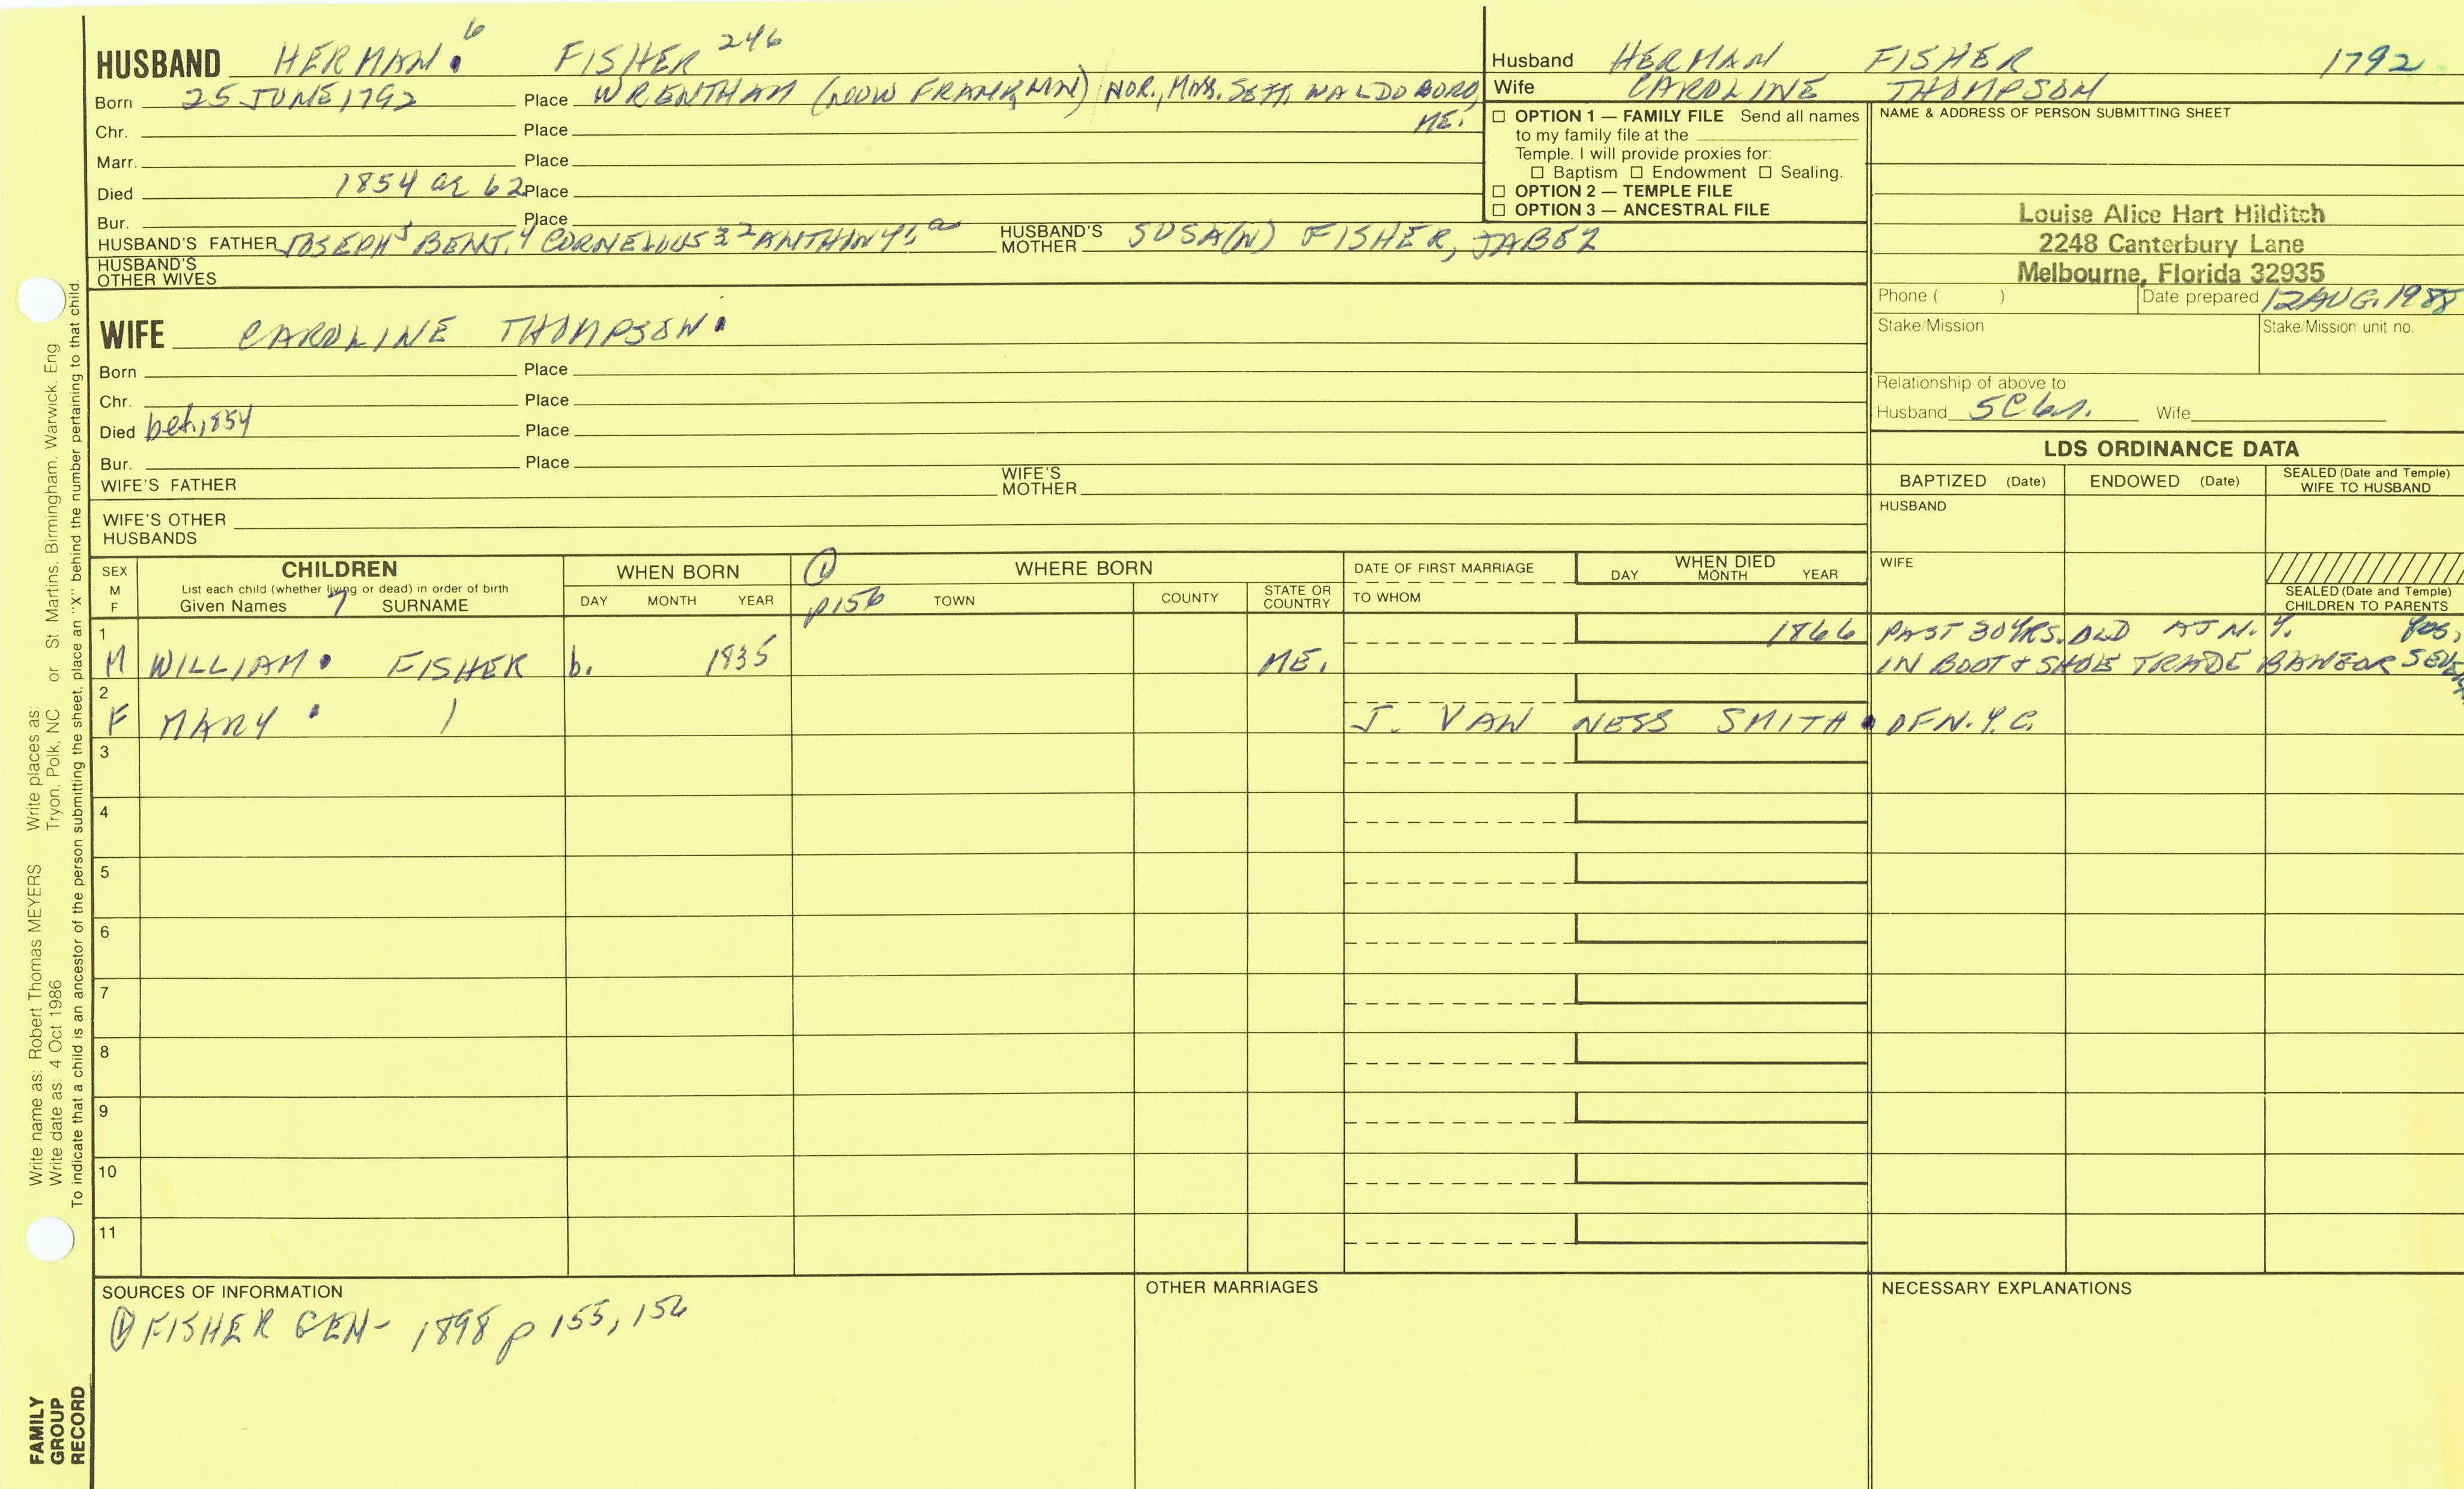 HUSBAND HERMAN. 6 FISHER 246
Born 25 JUNE 1792 Place WRENTHAM (NOW FRANKLIN) NOR., MASS. SETT. WALDOBORO,
ME.
Chr. Place
Marr. Place
Died 1854 or 62 Place
Bur. Place
HUSBAND'S FATHER JOSEPH5 BENJ.4 CORNELIUS 3 2 ANTHONY1 HUSBAND'S MOTHER SUSA(N) FISHER, JABEZ
HUSBAND'S
OTHER WIVES
Husband HERMAN FISHER 1792
Wife CAROLINE THOMPSON
☐ OPTION 1 — FAMILY FILE Send all names
to my family file at the
Temple. I will provide proxies for:
☐ Baptism ☐ Endowment ☐ Sealing.
☐ OPTION 2 — TEMPLE FILE
☐ OPTION 3 — ANCESTRAL FILE
NAME & ADDRESS OF PERSON SUBMITTING SHEET
Louise Alice Hart Hilditch
2248 Canterbury Lane
Melbourne, Florida 32935
Phone ( ) Date prepared 12 AUG. 1988
Stake/Mission Stake/Mission unit no.
Relationship of above to
Husband 5C6r. Wife
WIFE CAROLINE THOMPSON.
Born Place
Chr. Place
Died bef. 1854 Place
Bur. Place
WIFE'S FATHER WIFE'S MOTHER
WIFE'S OTHER
HUSBANDS
LDS ORDINANCE DATA
BAPTIZED (Date) ENDOWED (Date) SEALED (Date and Temple)
WIFE TO HUSBAND
HUSBAND
WIFE
SEALED (Date and Temple)
CHILDREN TO PARENTS
SEX
M
F
CHILDREN
List each child (whether living or dead) in order of birth
Given Names 7 SURNAME
WHEN BORN
DAY MONTH YEAR
① p156
WHERE BORN
TOWN COUNTY STATE OR COUNTRY
DATE OF FIRST MARRIAGE
TO WHOM
WHEN DIED
DAY MONTH YEAR
1 1866 PAST 30 YRS. OLD AT N.Y. pos,
M WILLIAM. FISHER b. 1835 ME. IN BOOT & SHOE TRADE BANGOR
2
F MARY . J. VAN NESS SMITH. OF N.Y.C.
3
4
5
6
7
8
9
10
11
SOURCES OF INFORMATION
① FISHER GEN- 1898 p 155, 156
OTHER MARRIAGES
NECESSARY EXPLANATIONS
Write name as: Robert Thomas MEYERS Write places as:
Write date as: 4 Oct 1986 Tryon, Polk, NC or St. Martins, Birmingham, Warwick, Eng
To indicate that a child is an ancestor of the person submitting the sheet, place an "X" behind the number pertaining to that child.
FAMILY
GROUP
RECORD